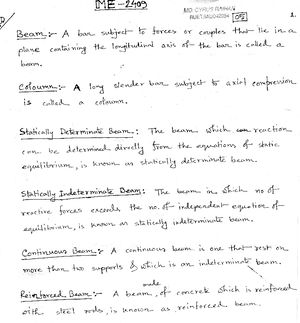 ME-2409
1
Beam:- A bar subject to forces or couples that lie in a
plane containing the longitudinal axis of the bar is called a
beam.
Coloumn:- A long slender bar subject to axial compression
is called a coloumn.
Statically Determinate Beam: The beam which reaction
can be determined directly from the equations of static
equilibrium, is known as statically determinate beam.
Statically Indeterminate Beam: The beam in which no of
reactive forces exceeds the no. of independent equation of
equilibrium, is known as statically indeterminate beam.
Continuous Beam:- A continuous beam is one that rest on
more than two supports & which is an indeterminate beam.
made
Reinforced Beam:- A beam, of concrete which is reinforced
with steel rods, is known as reinforced beam.